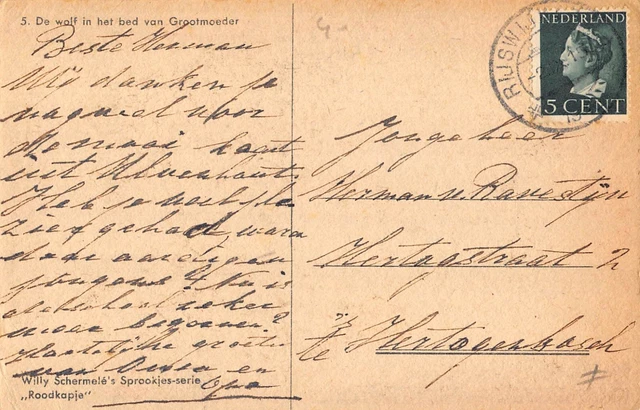 5. De wolf in het bed van Grootmoeder
Beste Herman
Wij danken je
voor
de mooi kaart
uit Ulvenhout
Heb je
waren
daar aardigen
jongens? Nu is
de school zeker
weer begonnen?
Hartelijke groeten
van Oma en
Opa
Willy Schermelé's Sprookjes-serie
„Roodkapje"
NEDERLAND
5 CENT
RIJSWIJ
Jongeheer
Herman v. Ravesteijn
Hertogstraat 2
te 's Hertogenbosch